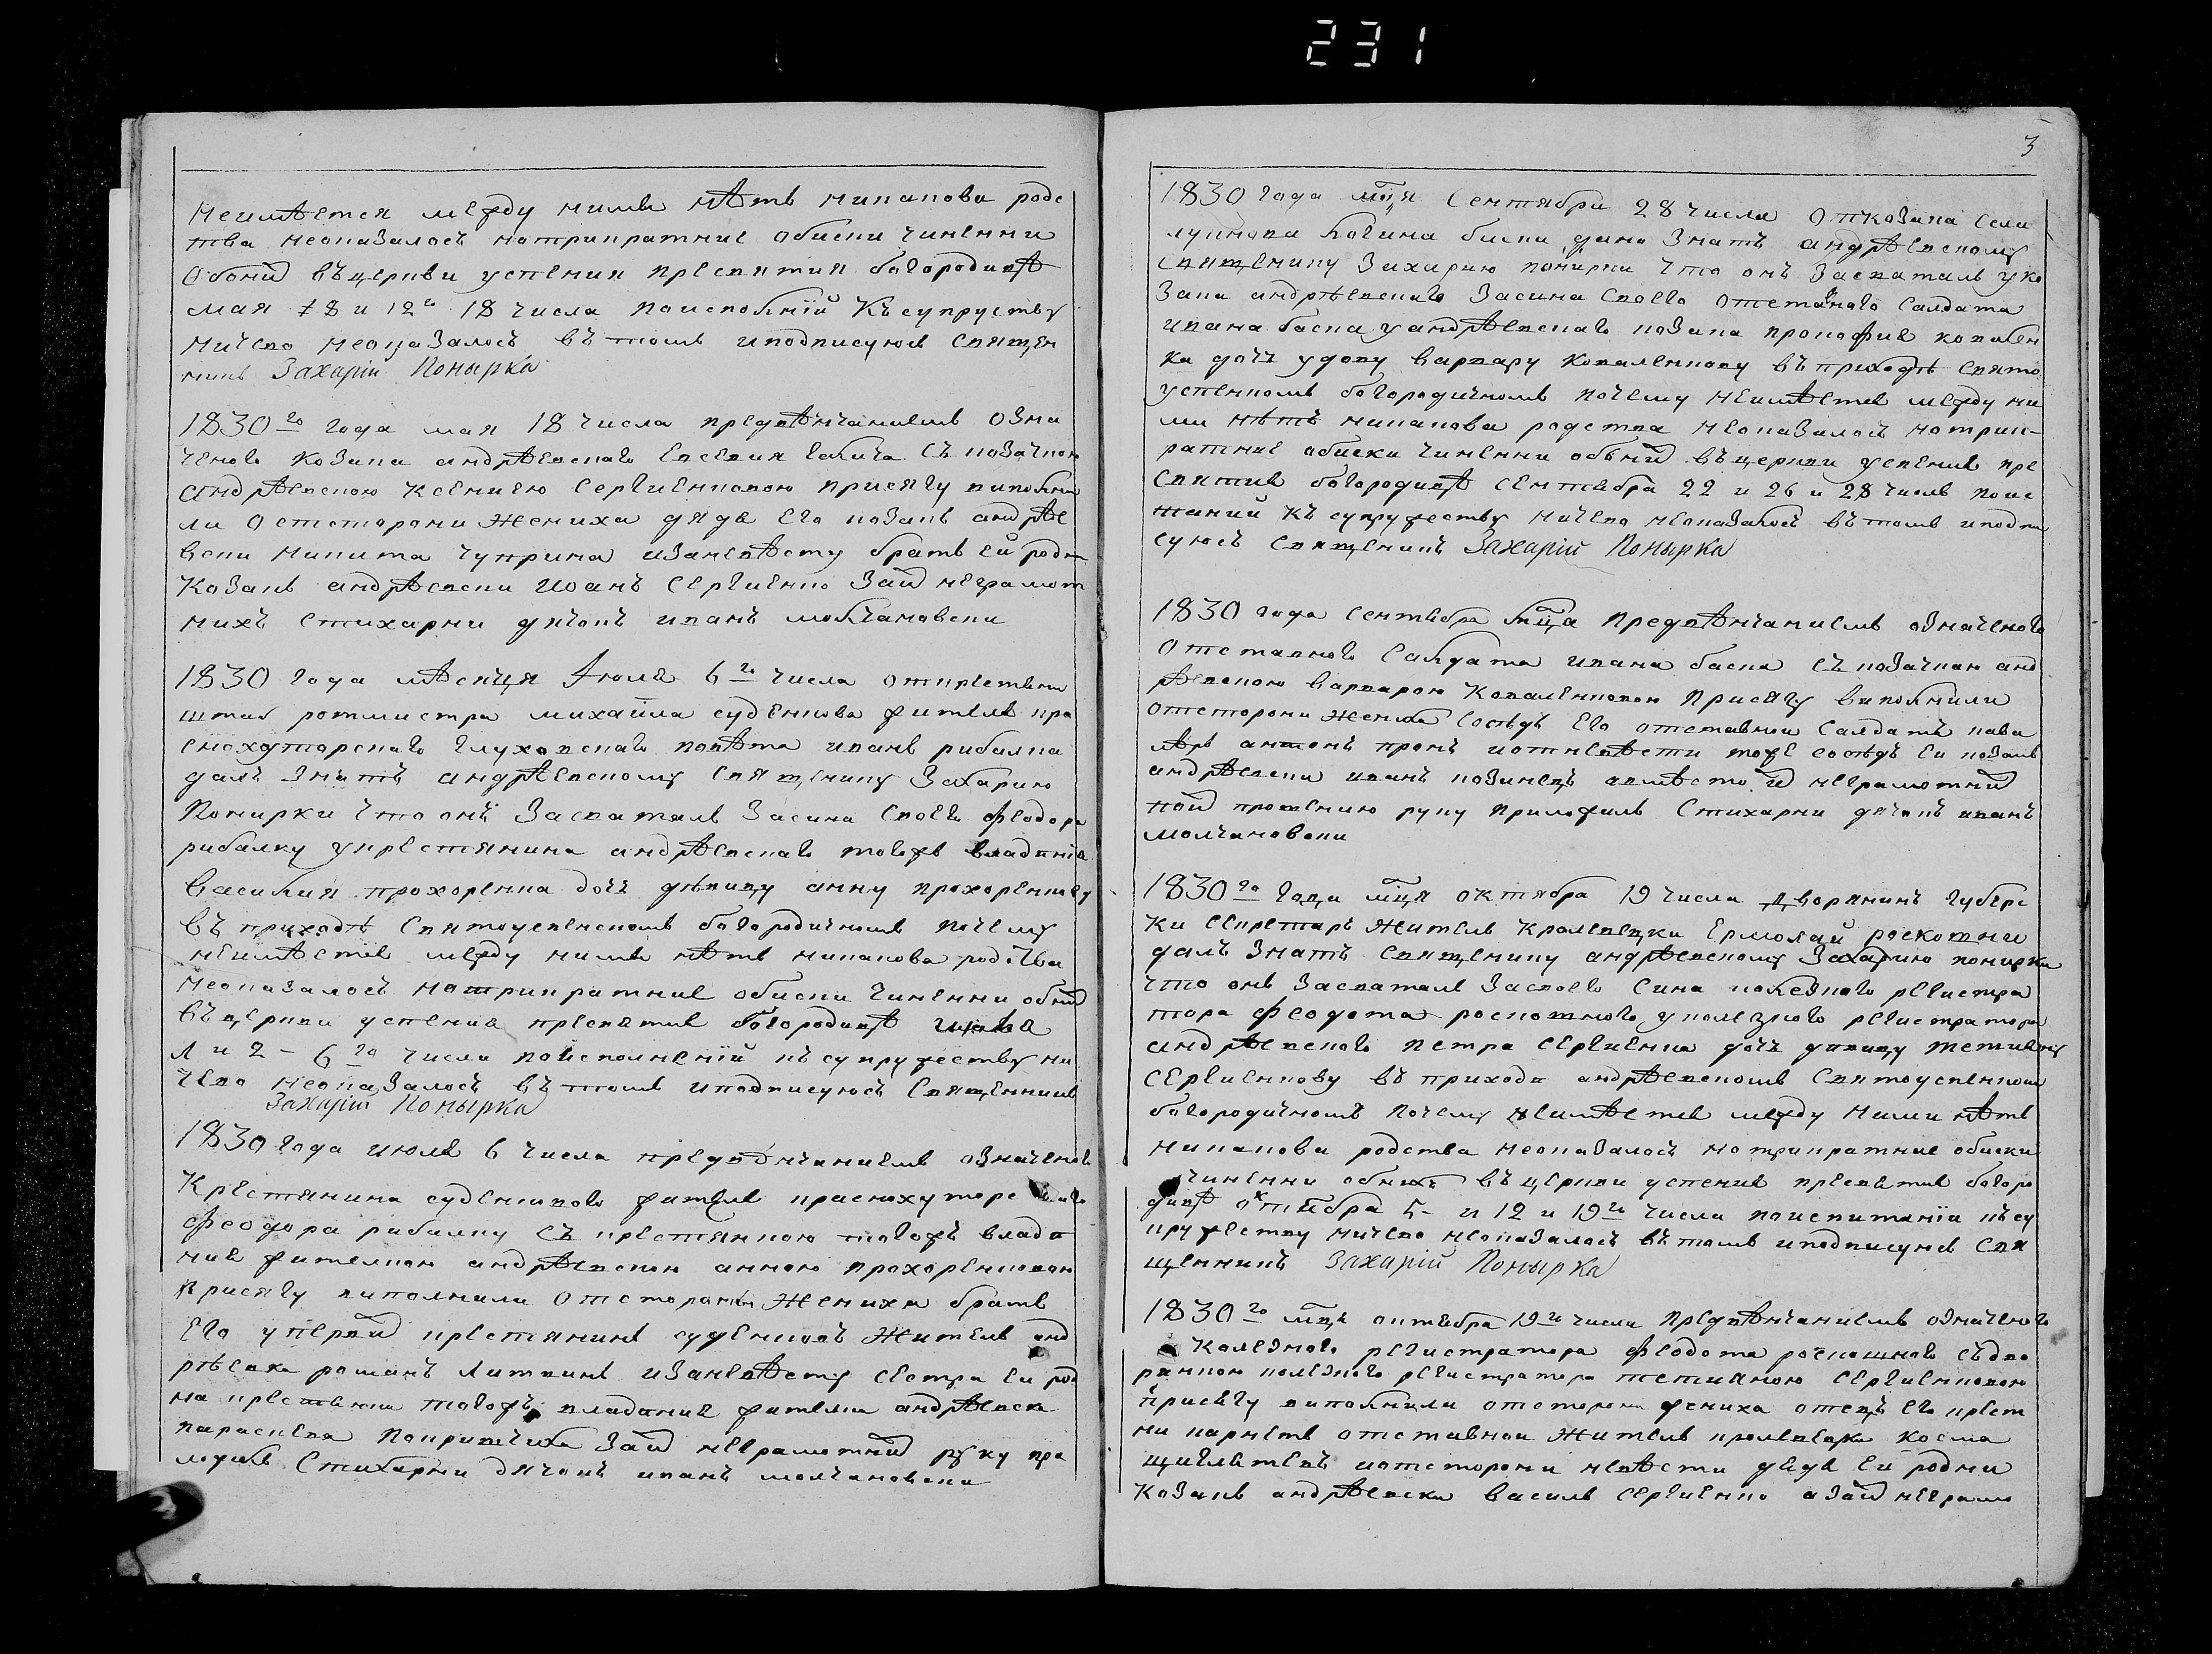 231
неимѣется между ними нѣтъ никакова родс
тва неоказалосъ нотрикратние обиски чиненни
обоий въ церкви успения пресвятия богородицѣ
мая 18 числа къ супруству
ничево неоказалосъ въ томъ иподписуюсъ священ
никъ Захарій Понырка
1830го года мая 18 числа предвѣнчаниемъ озна
ченого козака андрѣевскаго евсевия съ козачкою
андрѣевскою Ксениею Сергиенковою присягу виполни
ли отстсторони жениха дядя его козакъ андрѣе
вски никита чуприна изаневѣсту братъ ей родн
козакъ андрѣевски иоанъ Сергиенко заий неграмот
нихъ стихарни дячокъ иванъ молчановски
1830 года мѣсяця июля 6го числа открестяни
штаб ротмистра михайла суденкова жителя кра
снохуторскаго глуховскаго повѣта иванъ рибалка
далъ знатъ андрѣевскому священику Захарию
Понирки что онъ засваталъ засина своего феодора
рибалку укрестянина андрѣевскаго тогожъ владния
василия прохоренка дочъ дѣвицу анну прохоренкову
въ приходѣ святоуспенскомъ богородичномъ почему
неимѣется между ними нѣтъ никакова родства
неоказалосъ нотрикратние обиски чиненни обний
въ церкви успения пресвятия богородицѣ июля
1 и 2 - 6го числа поисполнений къ супружеству ни
чево неоказалосъ въ томъ иподписуюсъ священникъ
Захарій Понырка
1830 года июля 6 числа предвѣнчаниемъ означеного
крестянина суденкового жителя краснохуторс
феодора рибалку съ крестянкою тогожъ владѣ
ния жителкою андрѣевскою анною прохоренковою
присягу виполнили отстсторони жениха братъ
его упервий крестянинъ суденковъ житель анд
рѣевка романъ литвинъ изаневѣсту сестра ей род
на крестянка тогожъ владания жителка андрѣевск
параскева заий неграмотний руку при
ложилъ стихарни дячокъ иванъ молчановски
3
1830 года мця Сентября 28 числа откозака села
басна дано знатъ андрѣевскому
священику Захарию понирки что онъ засваталъ уко
зака андрѣевскаго засина своего отставного салдата
ивана басна уандрѣевскаго козака прокофия ковален
ка дочъ удову варвару коваленкову въ приходѣ свято
успенномъ богородичномъ почему неимѣется между ни
ми нѣтъ никакова родства неоказалосъ нотрик-
ратние обиски чиненни обоний въ церкви успения пре
святия богородицѣ сентября 22 и 26 и 28 числъ поис
къ супружеству ничево неоказалосъ въ томъ иподпи
суюсъ священникъ Захарій Понырка
1830 года сентября мця предвѣнчаниемъ означеного
отставного салдата ивана басна съ козачкою анд
рѣевскою варварою коваленковою присягу виполнили
отсторони жениха сосѣдъ его отставнои салдатъ кава
лѣръ антонъ иотневѣсти тоже сосѣдъ ей козакъ
андрѣевски иванъ козинецъ авмѣсто й неграмотний
кой прошению руку приложилъ стихарни дячокъ иванъ
молчановски
1830го года мця октября 19 числа дворянинъ губерс
ки секретарь житель кролевецки Ермолай роскотни
далъ знатъ священику андрѣевскому Захарию понирки
что онъ засваталъ засвоего сина колезкого регистра
тора феодота роскотного уколезкого регистратора
андрѣевского петра сергиенка дочъ дивицу тетияну
сергиенкову въ приходи андрѣевскомъ святоуспенном
богородичномъ почему неимѣется между ними нѣтъ
никакова родства неоказалосъ нотрикратние обиски
чиненни въ церкви успения пресвятия богоро
дицѣ октября 5 - и 12 и 19го числа поиспитании къ су
пружеству ничево неоказалосъ въ томъ иподписуюсъ свя
щенникъ Захарій Понырка
1830го мця октября 19го числа предвѣнчаниемъ означеного
колезкого регистратора феодота роскошного съ дво
рянкою колезкого регистратора тетияною сергиенковою
присягу виполнили отсторони жениха отецъ его крест
ни отставнои житель кролевецки косма
иотсторони невѣсти дядя ей родни
козакъ андрѣевски василь сергиенко азаий неграмо